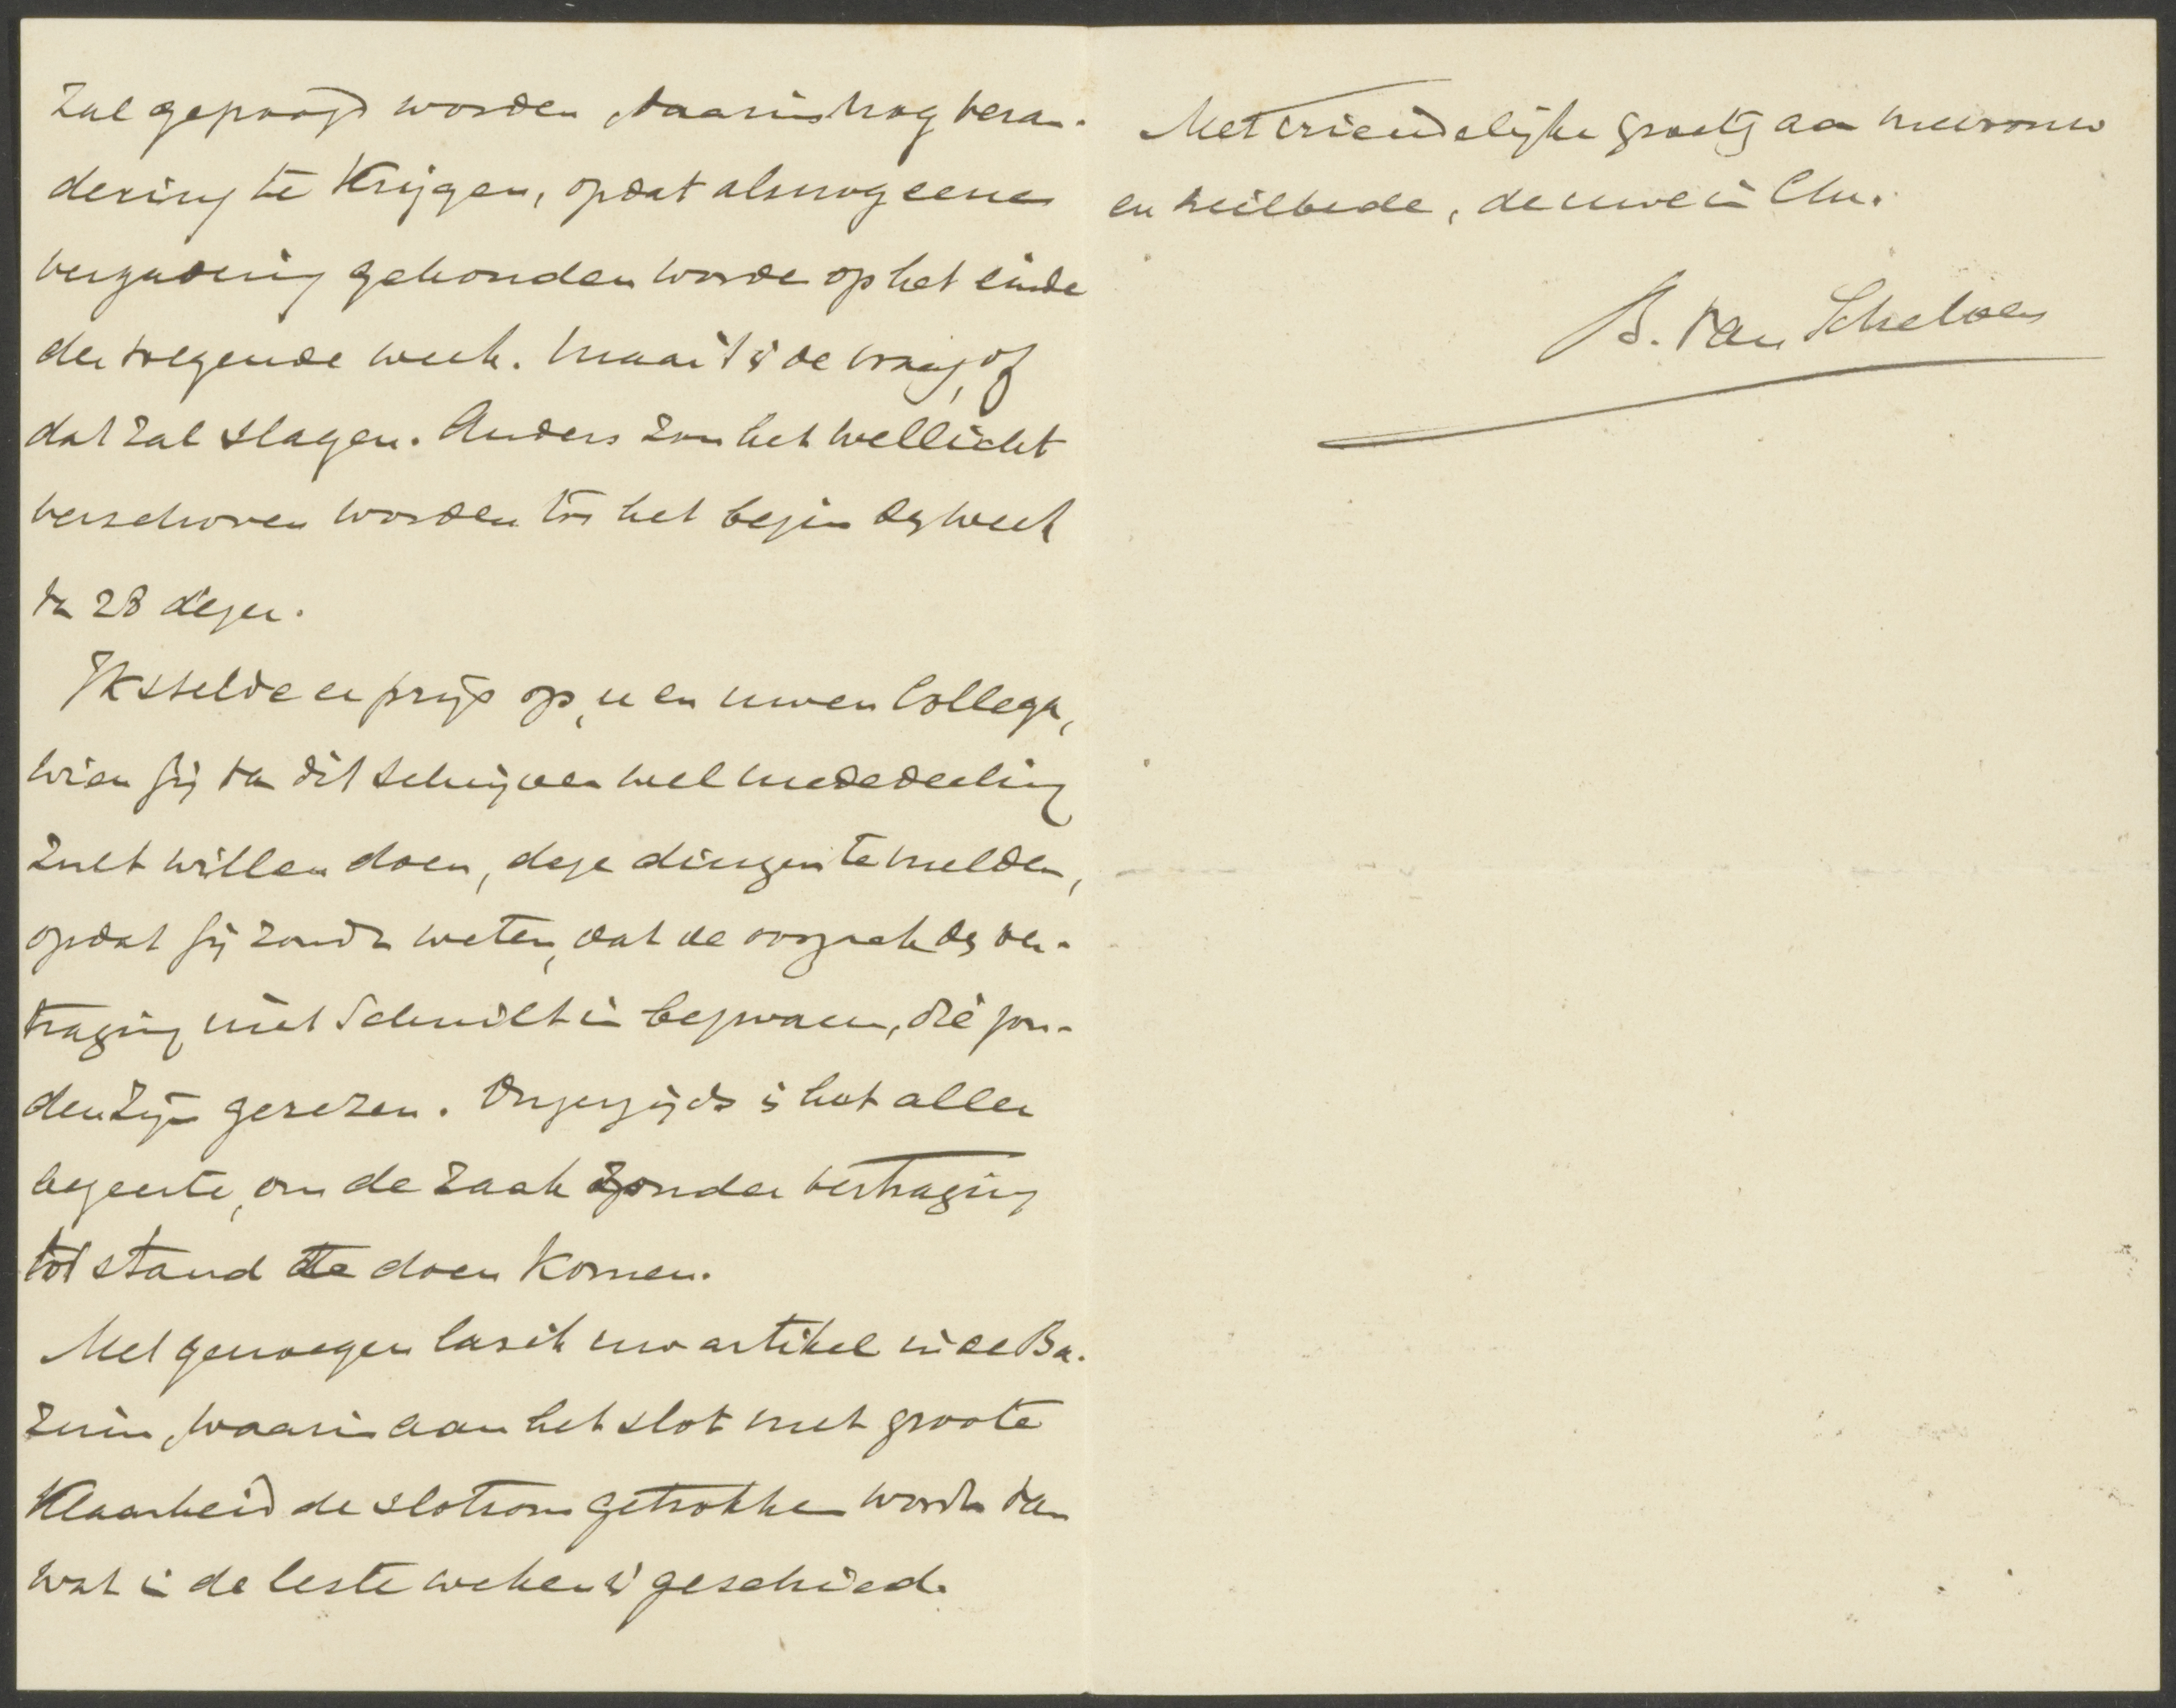 zal gepoogd worden, daarin nog veran-
dering te krijgen, opdat alsnog eene
vergadering gehouden worde op het einde
der volgende week. Maar 't is de vraag, of
dat zal slagen. Anders zou het wellicht
verschoven worden tot het begin der week
van 28 dezer.
Ik stelde er prijs op, u en uwen Collega,
wien gij van dit schrijven wel mededeeling
zult willen doen, deze dingen te melden,
opdat gij zoudt weten, dat de oorzaak der ver-
traging niet schuilt in bezwaren, die zou-
den zijn gerezen. Onzerzijds is het aller
begeerte, om de zaak zonder vertraging
tot stand te doen komen.
Met genoegen las ik uw artikel in de Ba-
zuin, waarin aan het slot met groote
klaarheid de slotsom getrokken wordt van
wat in de leste weken is geschied.
Met vriendelijke groete aan mevrouw
en heilbede, de uwe in Chr.
B. van Schelven